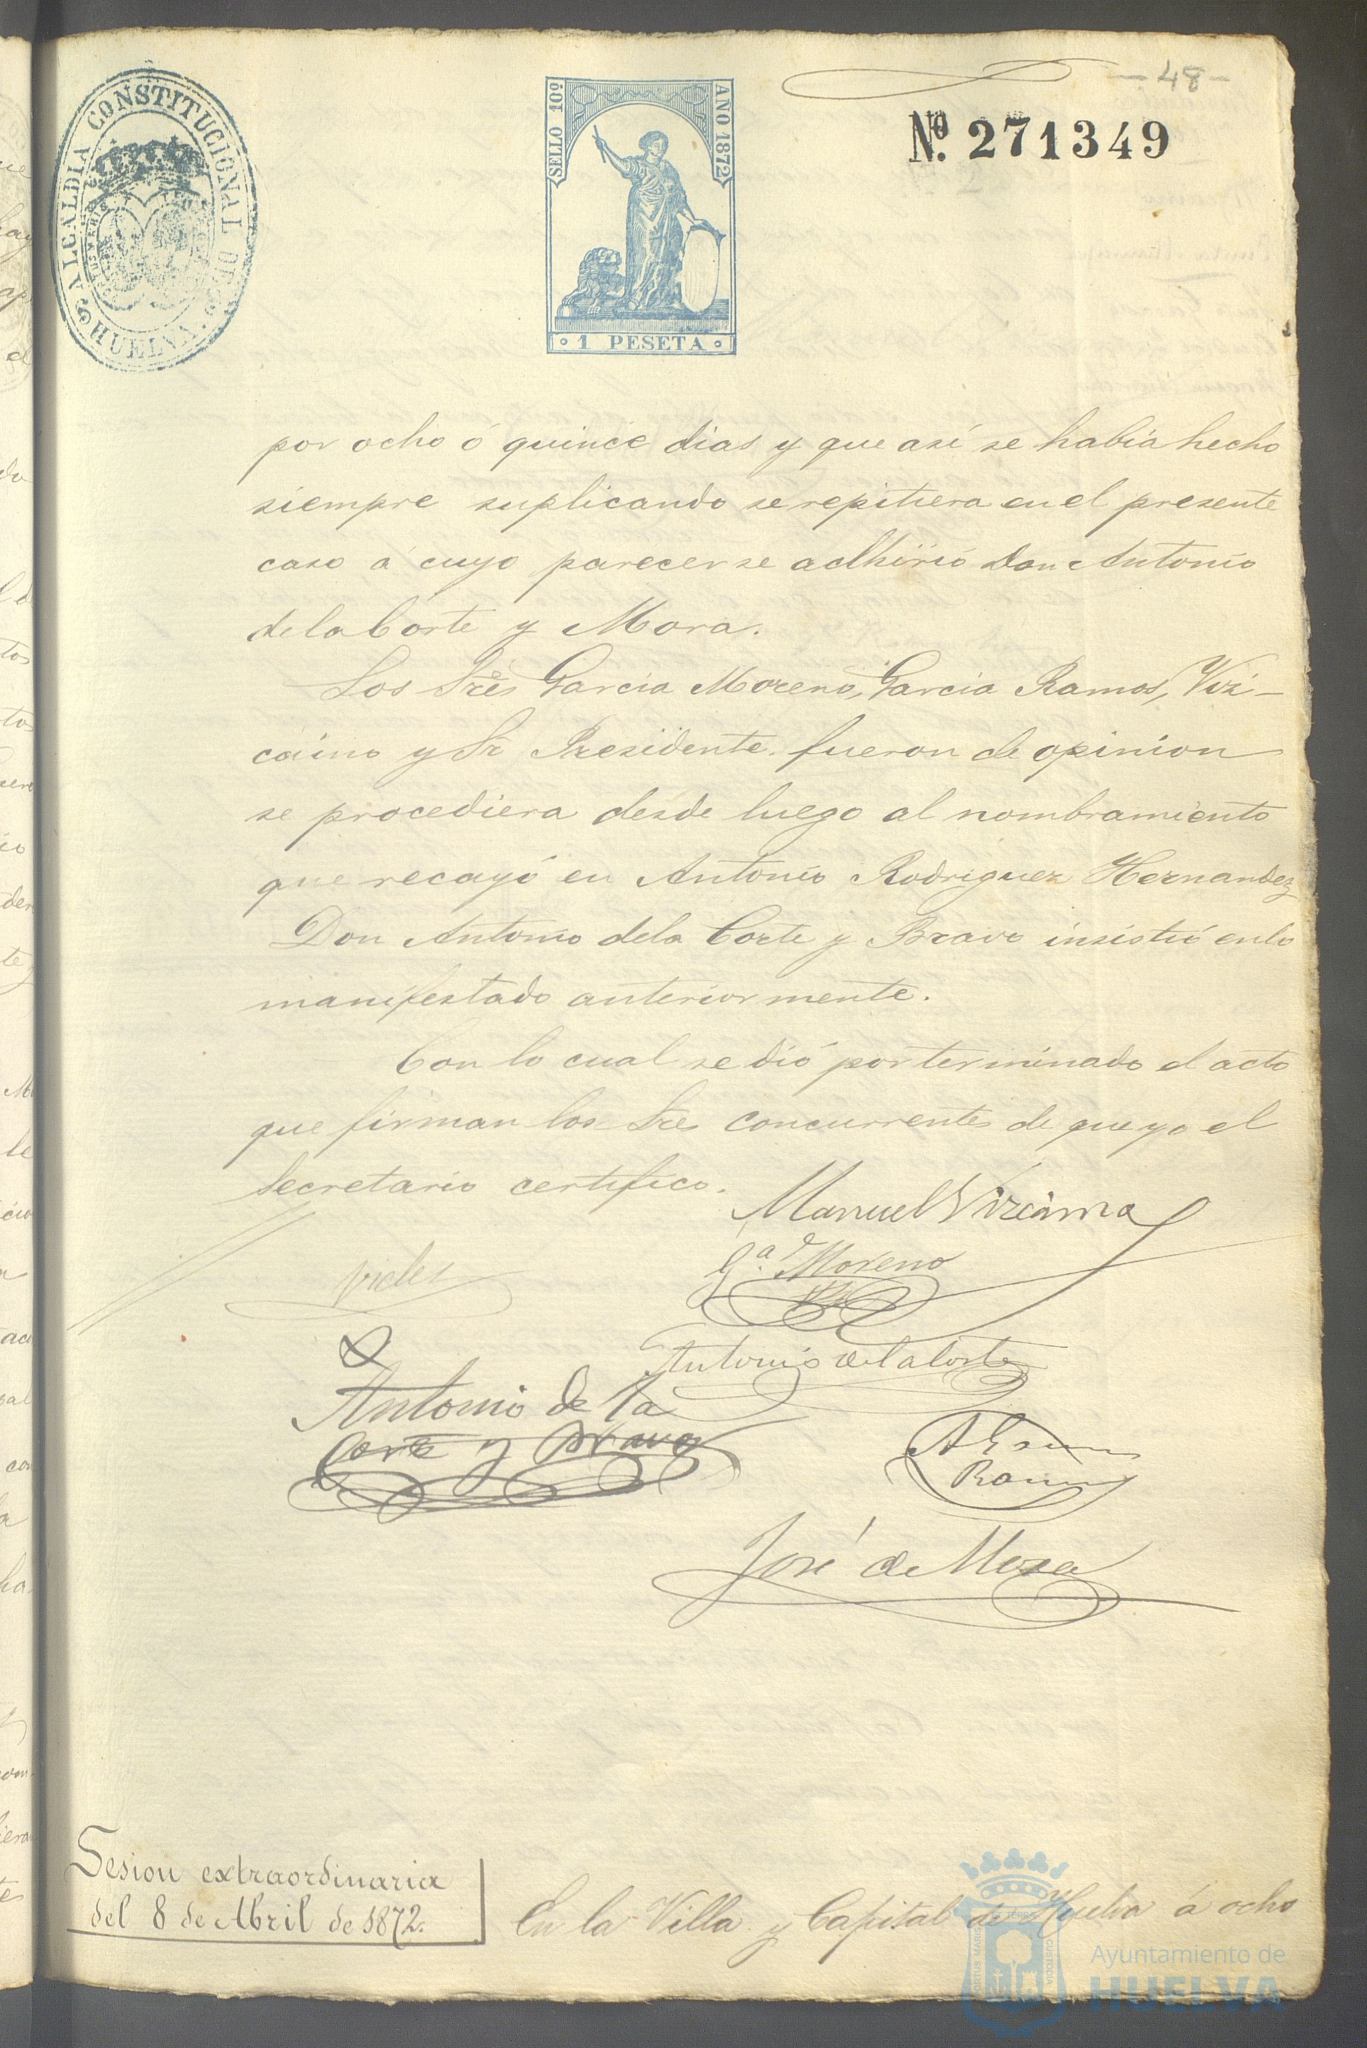 ALCALDIA CONSTITUCIONAL DE
HUELVA.
SELLO 10º
AÑO 1872
1 PESETA
- 48 -
Nº. 271349
por ocho ó quince dias y que asi se habia hecho
siempre suplicando se repitiera en el presente
caso á cuyo parecer se adhirió Don Antonio
de la Corte y Mora.
Los Sres Garcia Moreno, Garcia Ramos, Viz-
caino y Sr Presidente fueron de opinion
se procediera desde luego al nombramiento
que recayó en Antonio Rodriguez Hernandez
Don Antonio de la Corte y Bravo insistió en lo
manifestado anteriormente.
Con lo cual se dió por terminado el acto
que firman los Sres concurrentes de que yo el
Secretario certifico.
Manuel Vizcaino
Gª Moreno
Antonio de la Corte
Antonio de la
Corte y Bravo
Ramos
José de Mora
Sesion extraordinaria
del 8 de Abril de 1872.
En la Villa y Capital de Huelva á ocho
Ayuntamiento de
HUELVA